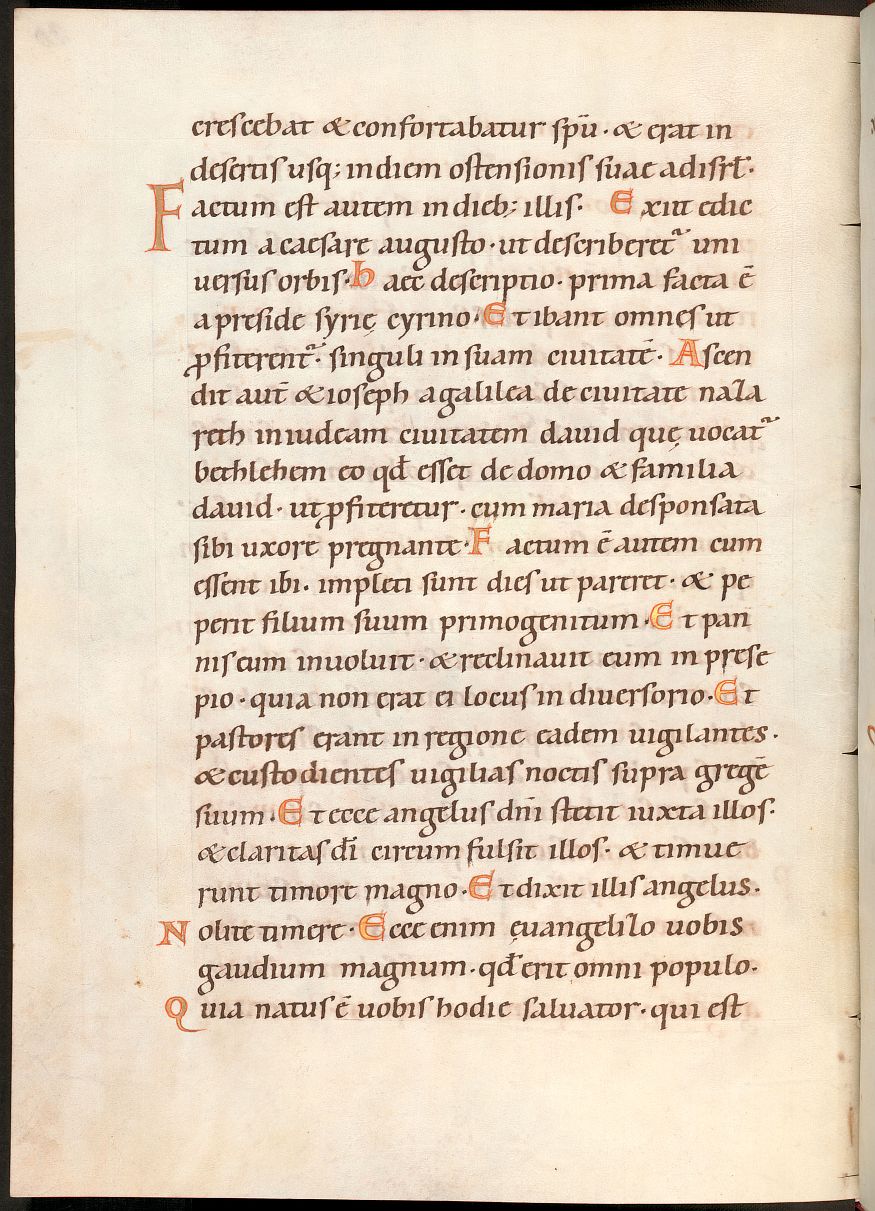 crescebat & confortabatur spū · & erat in
desertis usq; in diem ostensionis suae ad isrl̄·
Factum est autem in dieb; illis· Exiit edic
tum a caesare augusto · ut describeret᷑ uni
uersus orbis· haec descriptio · prima facta ē
a preside syrię cyrino · Et ibant omnes ut
ꝓfiterent᷑· singuli in suam ciuitatē· Ascen
dit aut̄ & ioseph a galilea de ciuitate naza
reth in iudeam ciuitatem dauid quę uocat᷑
bethlehem eo qd̄ esset de domo & familia
dauid · ut ꝓfiteretur · cum maria desponsata
sibi uxore pregnante · Factum ē autem cum
essent ibi · impleti sunt dies ut pareret · & pe
perit filium suum primogenitum · Et pan
nis eum inuoluit · & reclinauit eum in prese
pio · quia non erat ei locus in diuersorio · Et
pastores erant in regione eadem uigilantes ·
& custodientes uigilias noctis supra gregē
suum · Et ecce angelus dn̄i stetit iuxta illos·
& claritas dī circum fulsit illos · & timue
runt timore magno · Et dixit illis angelus·
Nolite timere · Ecce enim ęuangelizo uobis
gaudium magnum · qd̄ erit omni populo·
Quia natus ē uobis hodie saluator · qui est